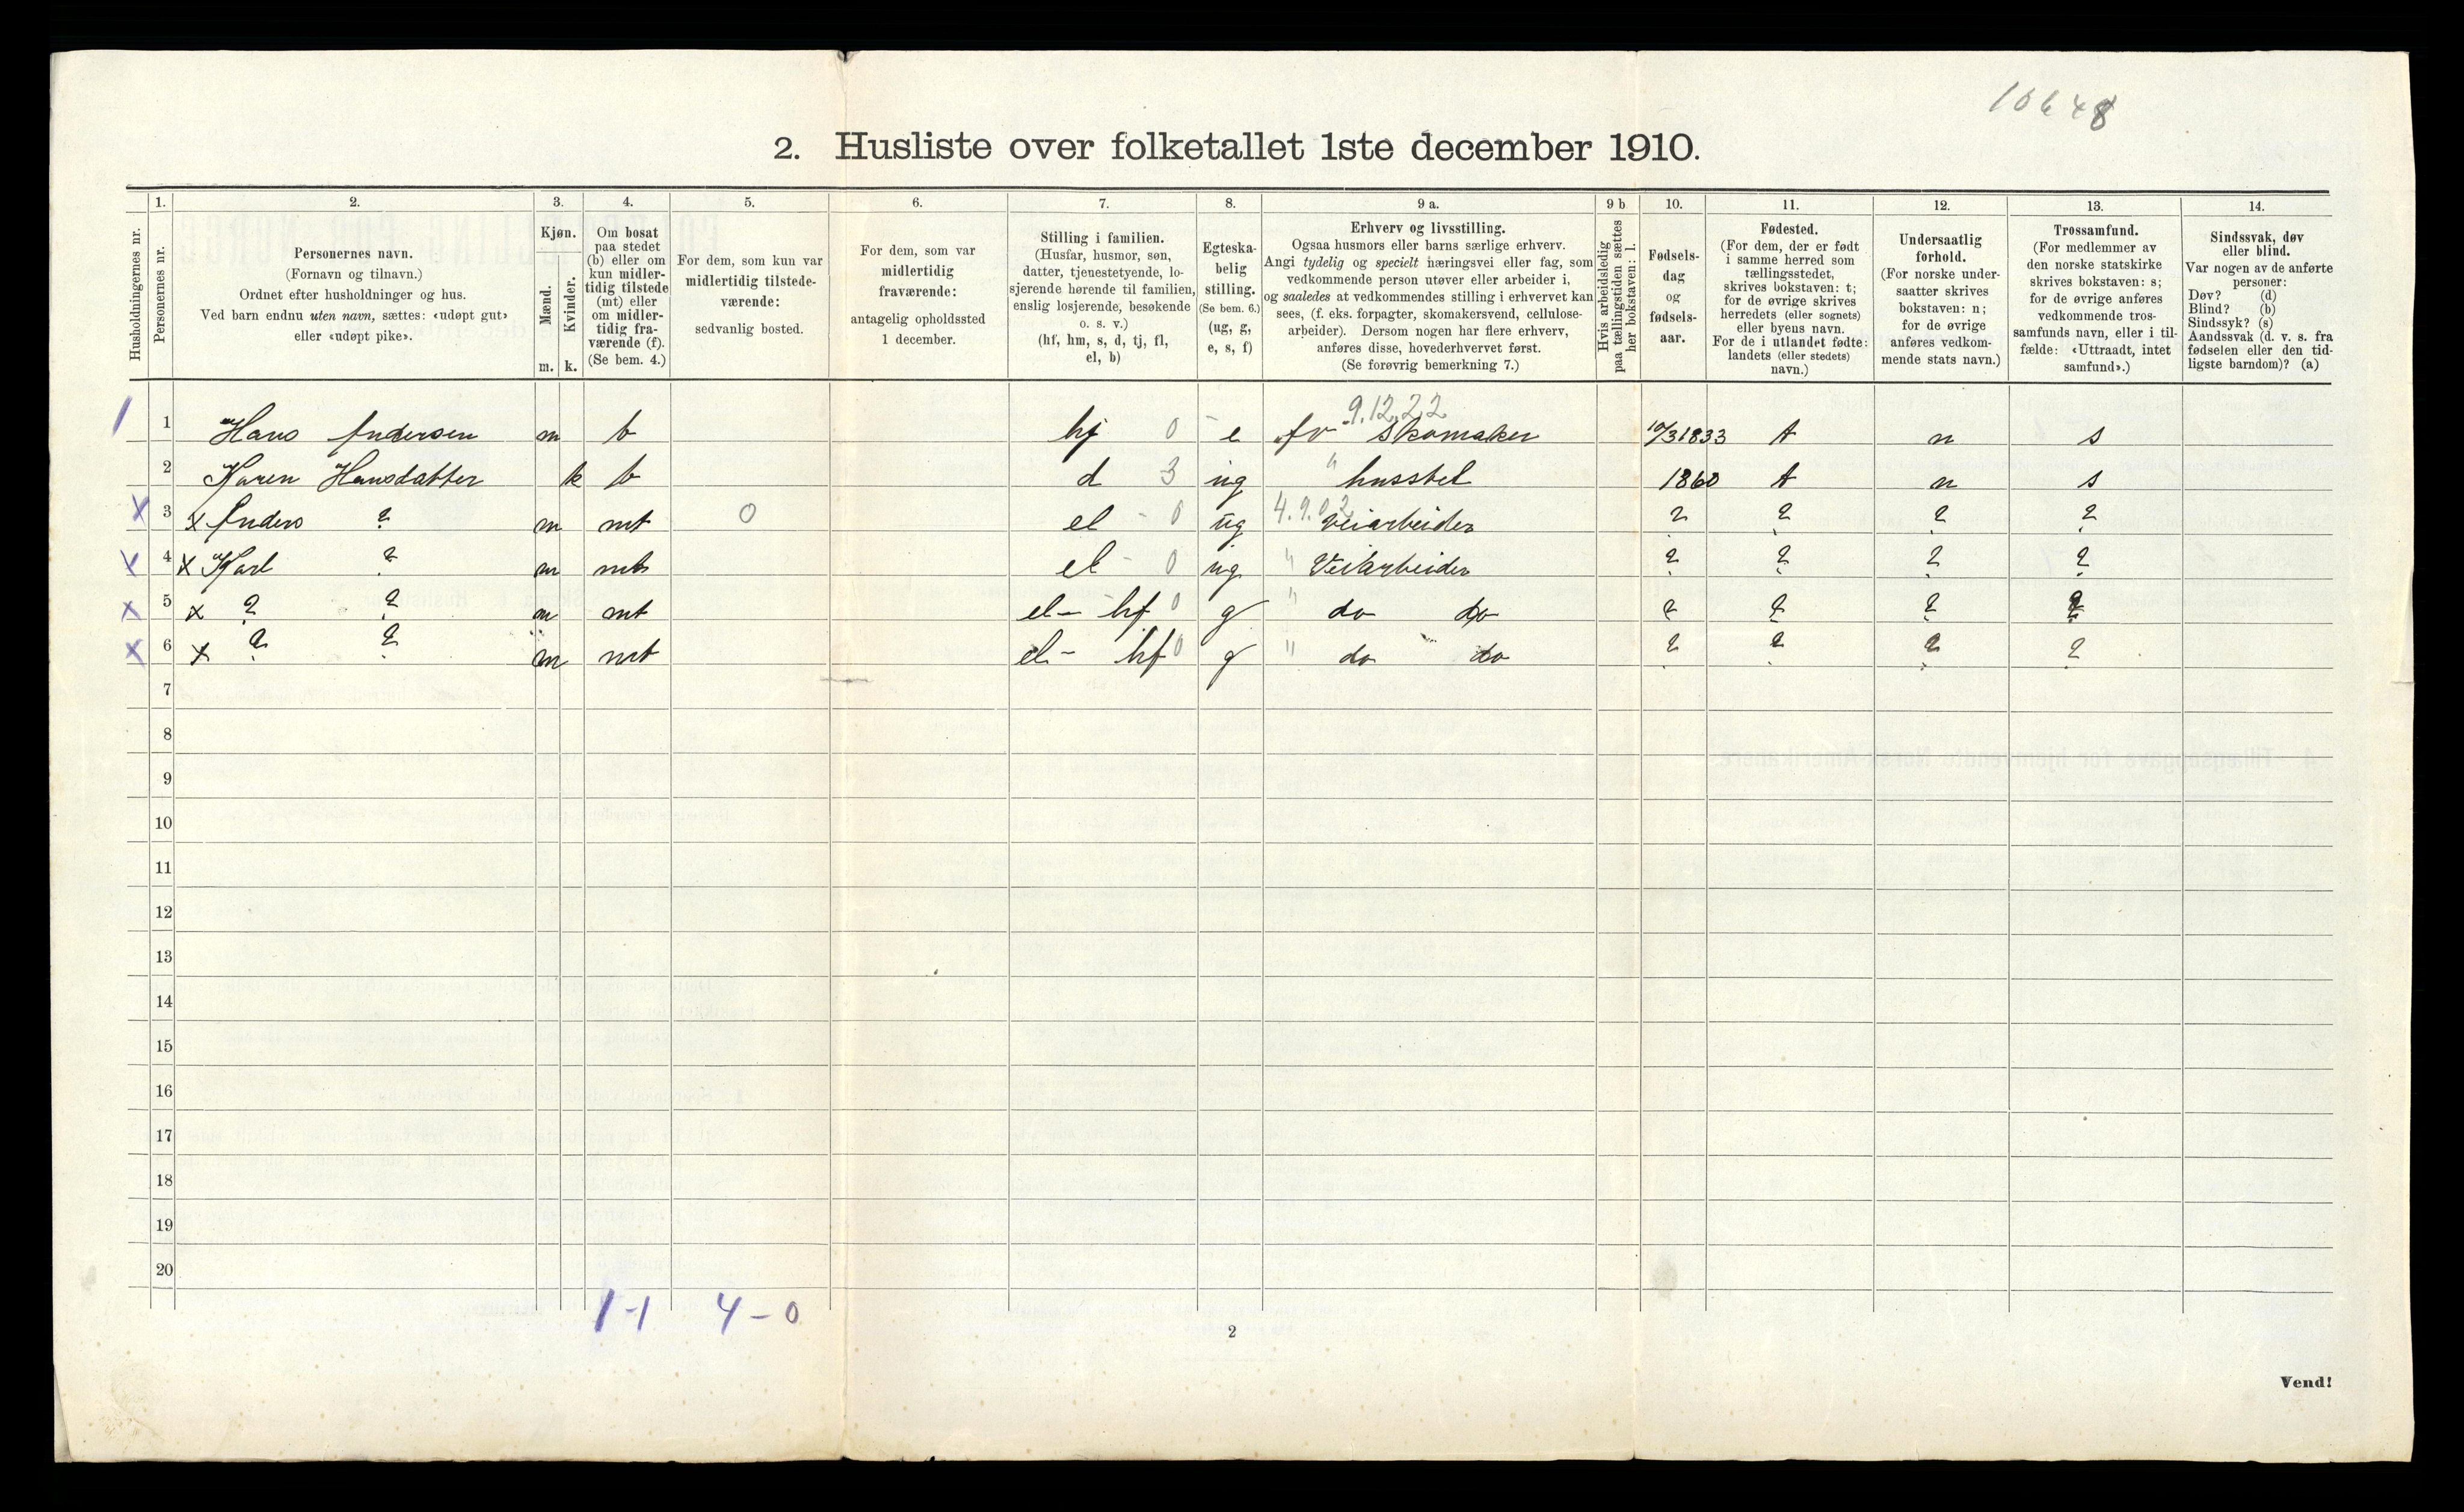 10648
2. Husliste over folketallet 1ste december 1910.
1. 2. 3. 4. 5. 6. 7. 8. 9 a. 9 b 10. 11. 12. 13. 14.
Husholdningernes nr.
Personernes nr.
Personernes navn.
(Fornavn og tilnavn.)
Ordnet efter husholdninger og hus.
Ved barn endnu uten navn, sættes: «udøpt gut»
eller «udøpt pike».
Kjøn.
Mænd.
Kvinder.
m. k.
Om bosat
paa stedet
(b) eller om
kun midler-
tidig tilstede
(mt) eller
om midler-
tidig fra-
værende (f).
(Se bem. 4.)
For dem, som kun var
midlertidig tilstede-
værende:
sedvanlig bosted.
For dem, som var
midlertidig
fraværende:
antagelig opholdssted
1 december.
Stilling i familien.
(Husfar, husmor, søn,
datter, tjenestetyende, lo-
sjerende hørende til familien,
enslig losjerende, besøkende
o. s. v.)
(hf, hm, s, d, tj, fl,
el, b)
Egteska-
belig
stilling.
(Se bem. 6.)
(ug, g,
e, s, f)
Erhverv og livsstilling.
Ogsaa husmors eller barns særlige erhverv.
Angi tydelig og specielt næringsvei eller fag, som
vedkommende person utøver eller arbeider i,
og saaledes at vedkommendes stilling i erhvervet kan
sees, (f. eks. forpagter, skomakersvend, cellulose-
arbeider). Dersom nogen har flere erhverv,
anføres disse, hovederhvervet først.
(Se forøvrig bemerkning 7.)
Hvis arbeidsledig
paa tællingstiden sættes
her bokstaven: l.
Fødsels-
dag
og
fødsels-
aar.
Fødested.
(For dem, der er født
i samme herred som
tællingsstedet,
skrives bokstaven: t;
for de øvrige skrives
herredets (eller sognets)
eller byens navn.
For de i utlandet fødte:
landets (eller stedets)
navn.)
Undersaatlig
forhold.
(For norske under-
saatter skrives
bokstaven: n;
for de øvrige
anføres vedkom-
mende stats navn.)
Trossamfund.
(For medlemmer av
den norske statskirke
skrives bokstaven: s;
for de øvrige anføres
vedkommende tros-
samfunds navn, eller i til-
fælde: «Uttraadt, intet
samfund».)
Sindssvak, døv
eller blind.
Var nogen av de anførte
personer:
Døv? (d)
Blind? (b)
Sindssyk? (s)
Aandssvak (d. v. s. fra
fødselen eller den tid-
ligste barndom)? (a)
9.12.22
1 1 Hans Andersen m b hf 0 - e fv Skomaker 10/3 1833 t n s
2 Karen Hansdatter k b d 3 ug " husstel 1860 t n s
x 3 x Anders ? m mt 0 el - 0 ug 4.9.02 Veiarbeider ? ? ? ?
x 4 x Karl ? m mt el - 0 ug " Veiarbeider ? ? ? ?
x 5 x ? ? m mt el - hf 0 g " do do ? ? ? ?
x 6 x ? ? m mt el - hf 0 g " do do ? ? ? ?
7
8
9
10
11
12
13
14
15
16
17
18
19
20
1-1 4-0
2
Vend!